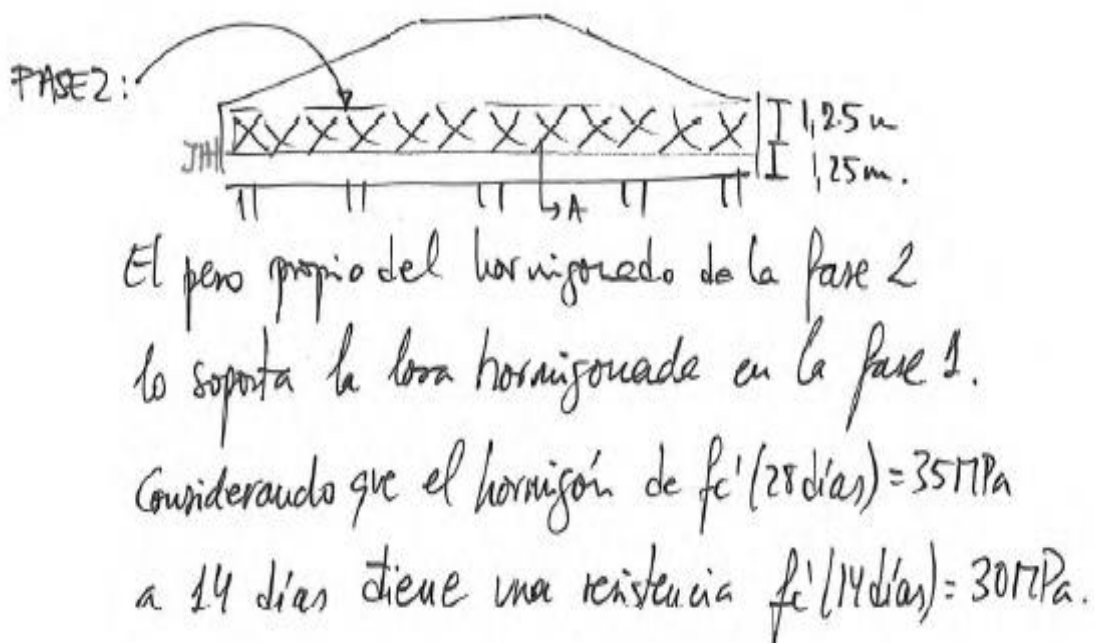 FASE 2:
1,25m
1,25m.
A
El peso propio del hormigonado de la fase 2
lo soporta la losa hormigonada en la fase 1.
Considerando que el hormigón de fc' (28 días) = 35 MPa
a 14 días tiene una resistencia fc' (14 días) = 30 MPa.